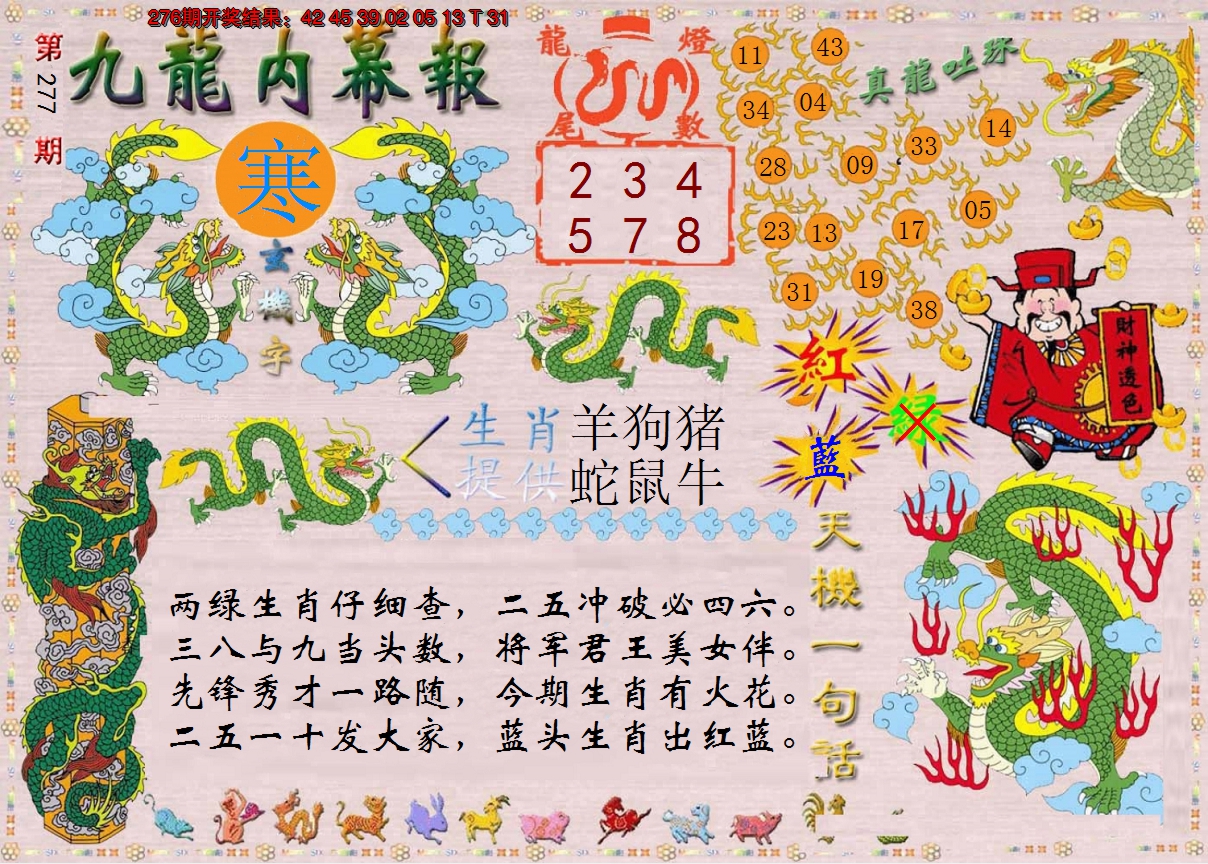 276期开奖结果：42 45 39 02 05 13 T 31
第277期
九龍内幕報
寒
玄機字
龍燈
尾數
2 3 4
5 7 8
真龍吐珠
11 43
34 04
33 14
28 09
05
23 13 17
31 19
38
財神透色
紅
绿
藍
生肖提供
羊狗猪
蛇鼠牛
天機一句話
两绿生肖仔细查，二五冲破必四六。
三八与九当头数，将军君王美女伴。
先锋秀才一路随，今期生肖有火花。
二五一十发大家，蓝头生肖出红蓝。